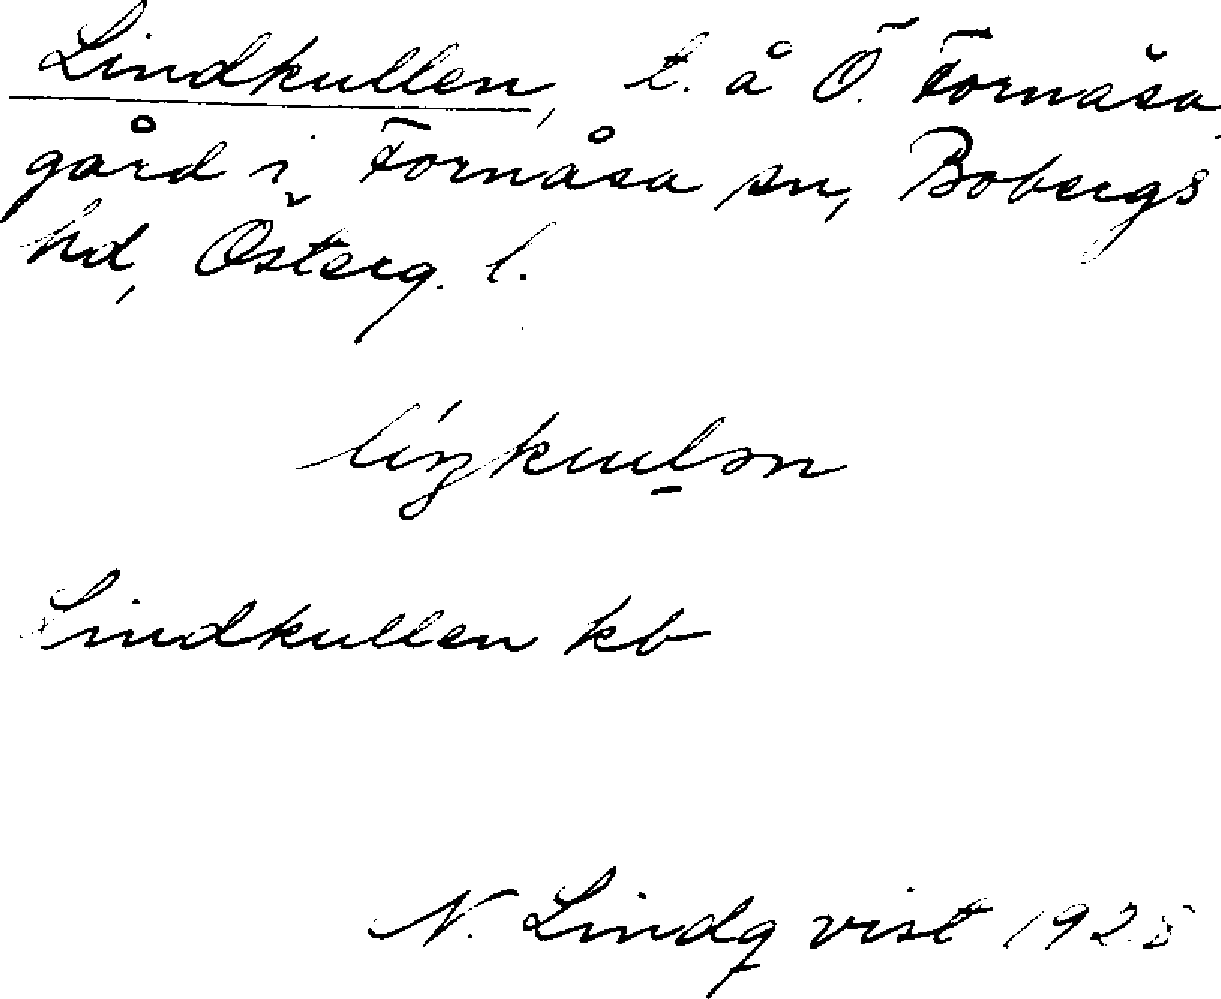 Lindkullen, t. å Ö. Fornåsa
gård i Fornåsa sn, Bobergs
hd, Österg. l.
Lindkullen kb
N. Lindqvist 1925